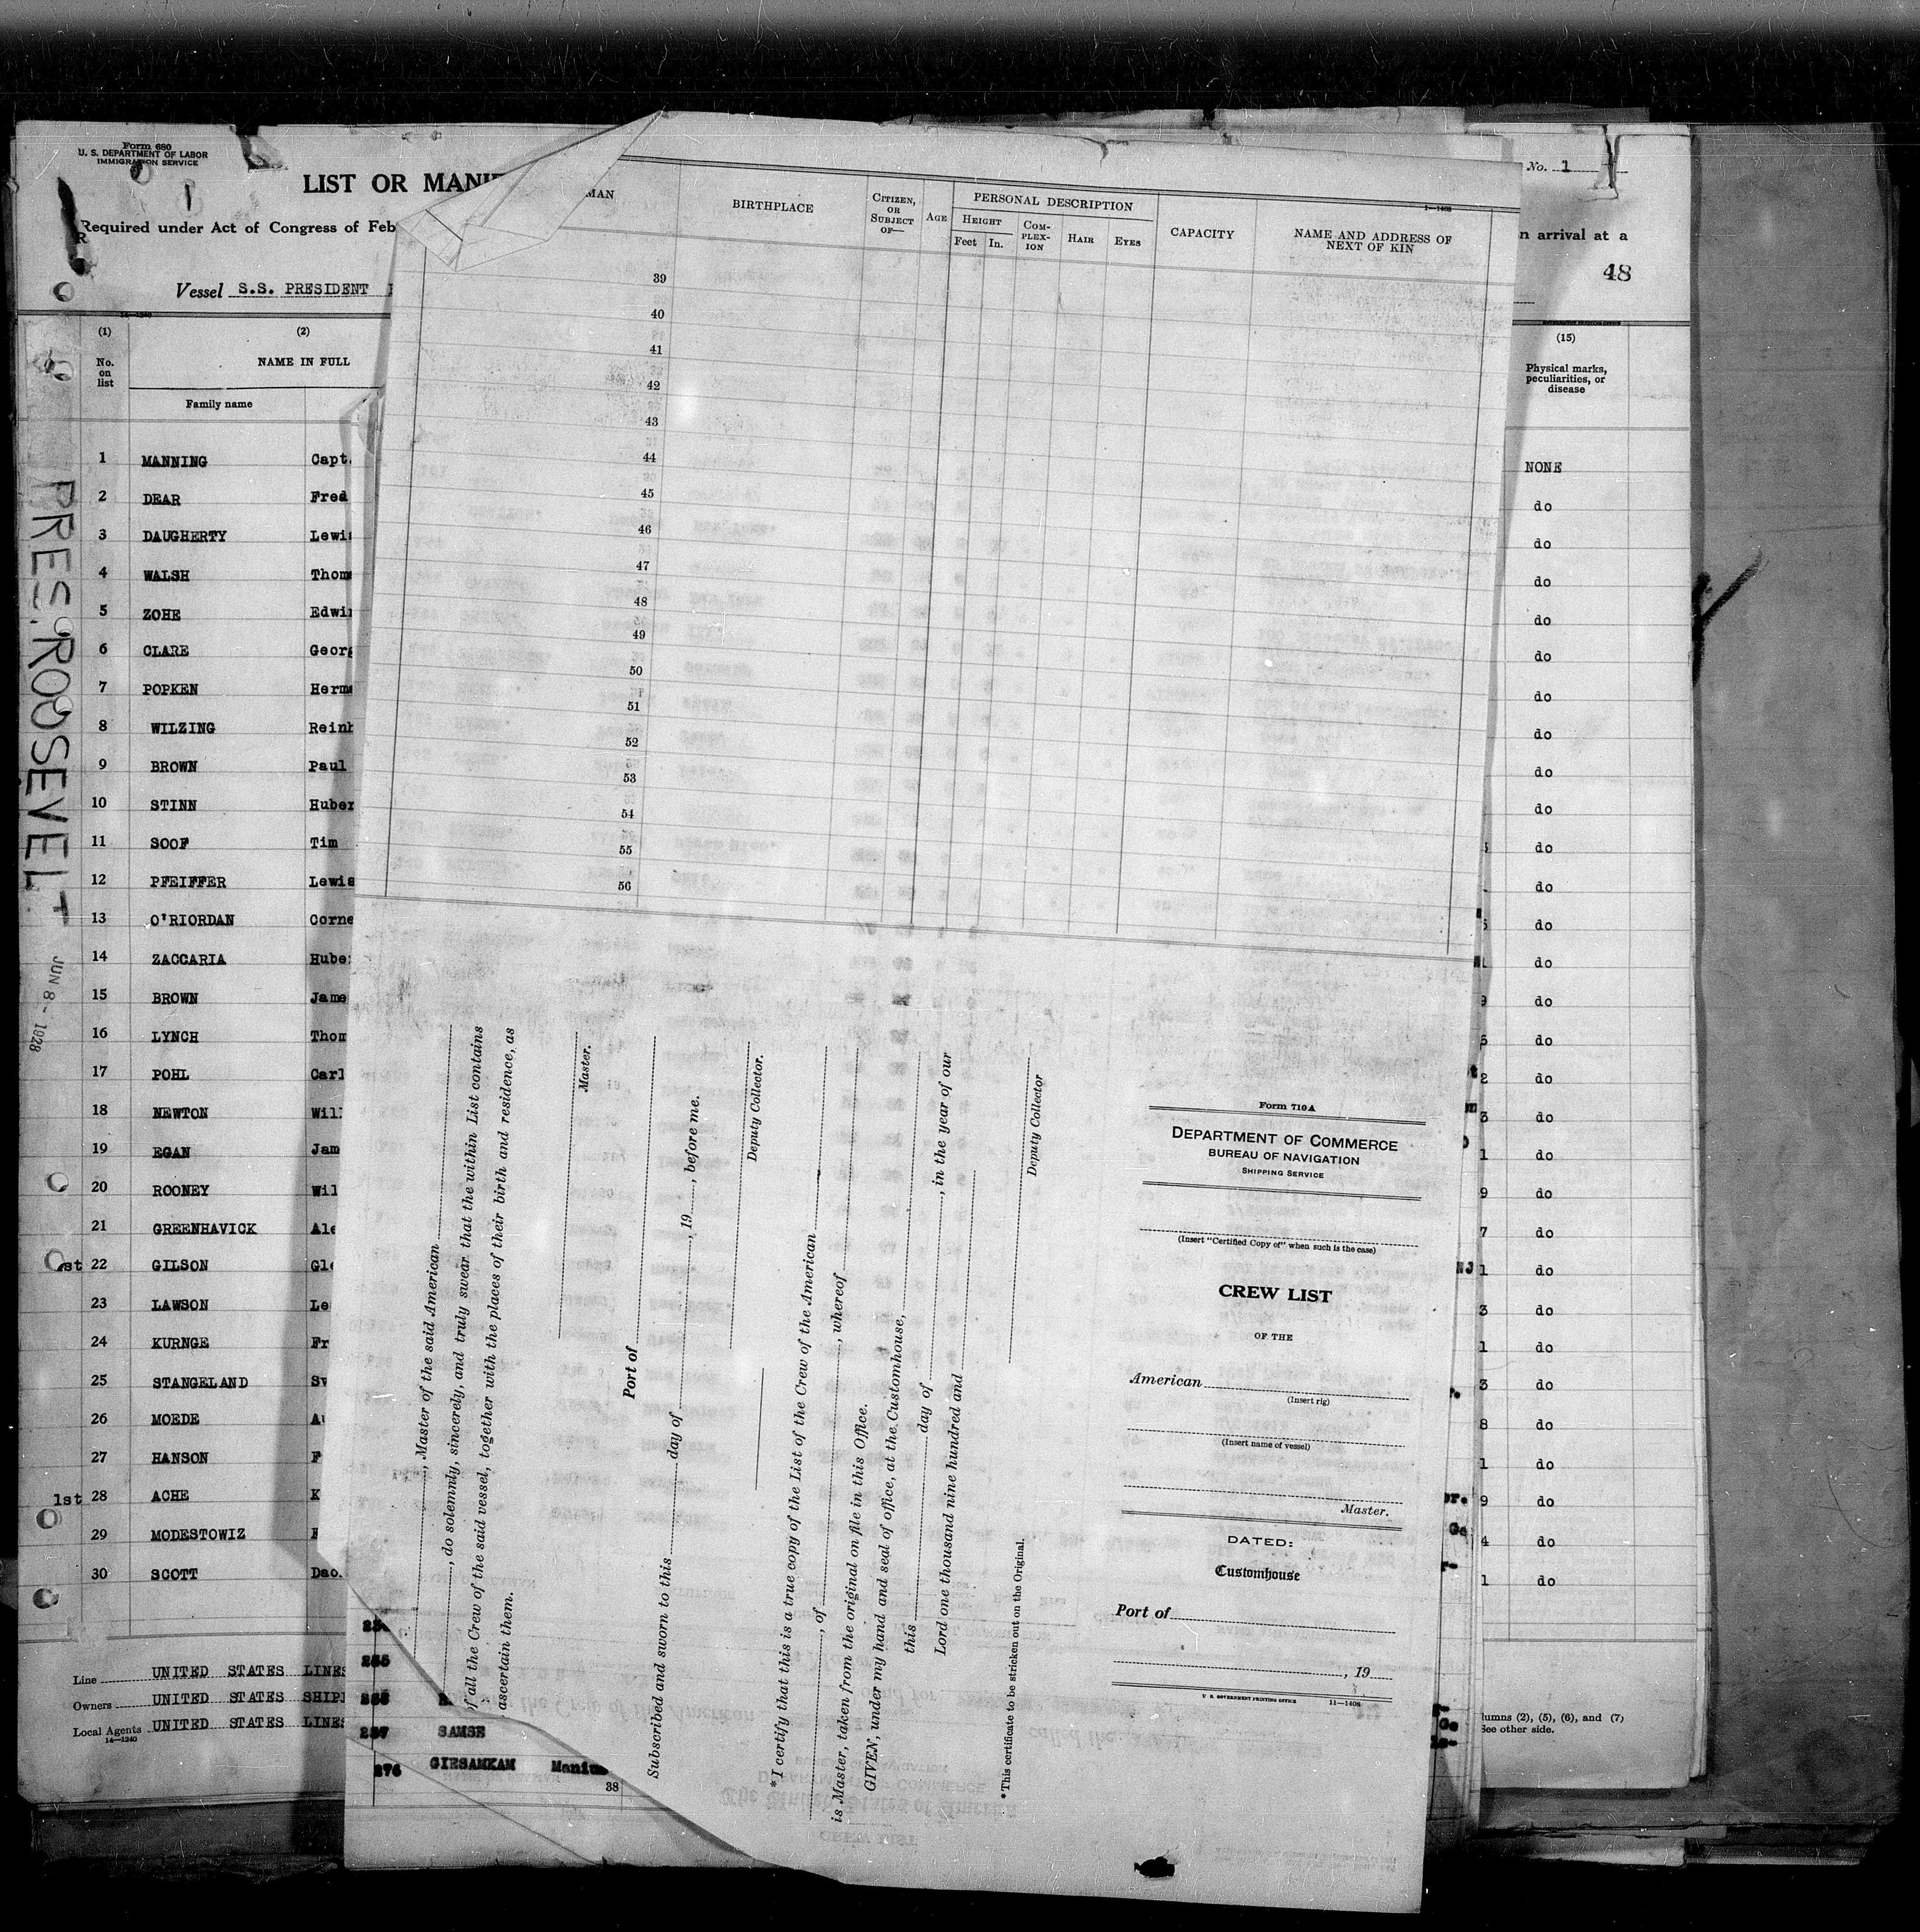 Form 680
U. S. DEPARTMENT OF LABOR
IMMIGRATION SERVICE
LIST OR MANIF
Required under Act of Congress of Feb
Vessel S.S. PRESIDENT
(1)
(2)
No. on list
NAME IN FULL
Family name
1 MANNING Capt.
2 DEAR Fred
3 DAUGHERTY Lewis
4 WALSH Thom
5 ZOHE Edwi
6 CLARE Georg
7 POPKEN Herm
8 WILZING Rein
9 BROWN Paul
10 STINN Huber
11 SOOF Tim
12 PFEIFFER Lewis
13 O'RIORDAN Corne
14 ZACCARIA Hube
15 BROWN Jame
16 LYNCH Thom
17 POHL Carl
18 NEWTON Will
19 EGAN Jam
20 ROONEY Wil
21 GREENHAVICK Ale
1st 22 GILSON Gle
23 LAWSON Le
24 KURNGE Fr
25 STANGELAND Sv
26 MOEDE A
27 HANSON F
1st 28 ACHE K
29 MODESTOWIZ
30 SCOTT Dao
Line UNITED STATES LINES
Owners UNITED STATES SHIP
Local Agents UNITED STATES LINES
14—1240
PRES. ROOSEVELT
JUN 8 - 1928
MAN
BIRTHPLACE
CITIZEN, OR SUBJECT OF—
AGE
PERSONAL DESCRIPTION
HEIGHT
Feet In.
COMPLEXION
HAIR
EYES
CAPACITY
NAME AND ADDRESS OF NEXT OF KIN
1—1408
39
40
41
42
43
44
45
46
47
48
49
50
51
52
53
54
55
56
, Master of the said American
, do solemnly, sincerely, and truly swear that the within List contains
of all the Crew of the said vessel, together with the places of their birth and residence, as
ascertain them.
Master.
Port of
Subscribed and sworn to this day of , 19 , before me.
Deputy Collector.
*I certify that this is a true copy of the List of the Crew of the American
, of , whereof
is Master, taken from the original on file in this Office.
GIVEN, under my hand and seal of office, at the Customhouse,
this day of , in the year of our
Lord one thousand nine hundred and
Deputy Collector
*This certificate to be stricken out on the Original.
Form 710A
DEPARTMENT OF COMMERCE
BUREAU OF NAVIGATION
SHIPPING SERVICE
(Insert "Certified Copy of" when such is the case)
CREW LIST
OF THE
American
(Insert rig)
(Insert name of vessel)
Master.
DATED:
Customhouse
Port of
, 19
U. S. GOVERNMENT PRINTING OFFICE 11—1408
235
237 SAMSE
276 GIRSAMKAM
38
No. 1
n arrival at a
48
(15)
Physical marks, peculiarities, or disease
NONE
do
do
do
do
do
do
do
do
do
do
do
do
do
do
do
do
do
do
do
do
do
do
do
do
do
do
do
do
do
lumns (2), (5), (6), and (7)
See other side.